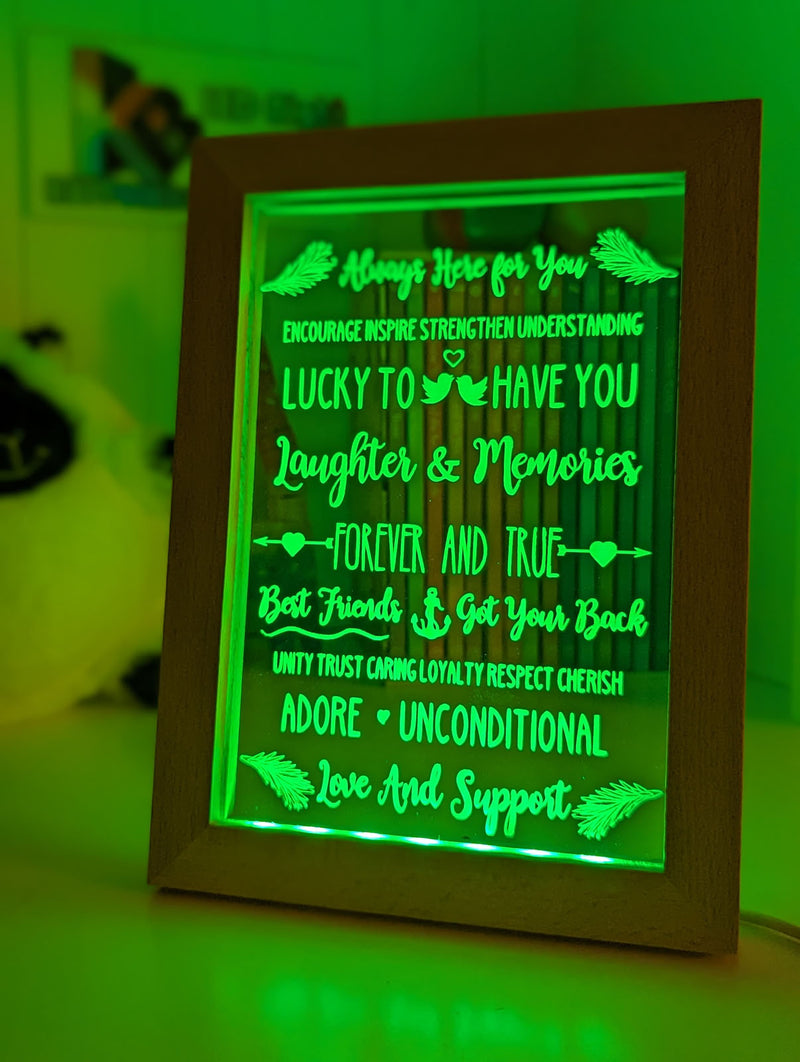 Always Here for You
ENCOURAGE INSPIRE STRENGTHEN UNDERSTANDING
LUCKY TO HAVE YOU
Laughter & Memories
FOREVER AND TRUE
Best Friends Got Your Back
UNITY TRUST CARING LOYALTY RESPECT CHERISH
ADORE UNCONDITIONAL
Love And Support